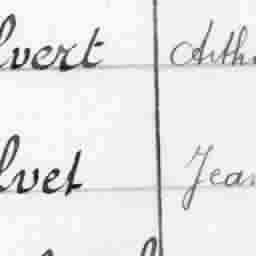 lvert Arth
lvet Jean